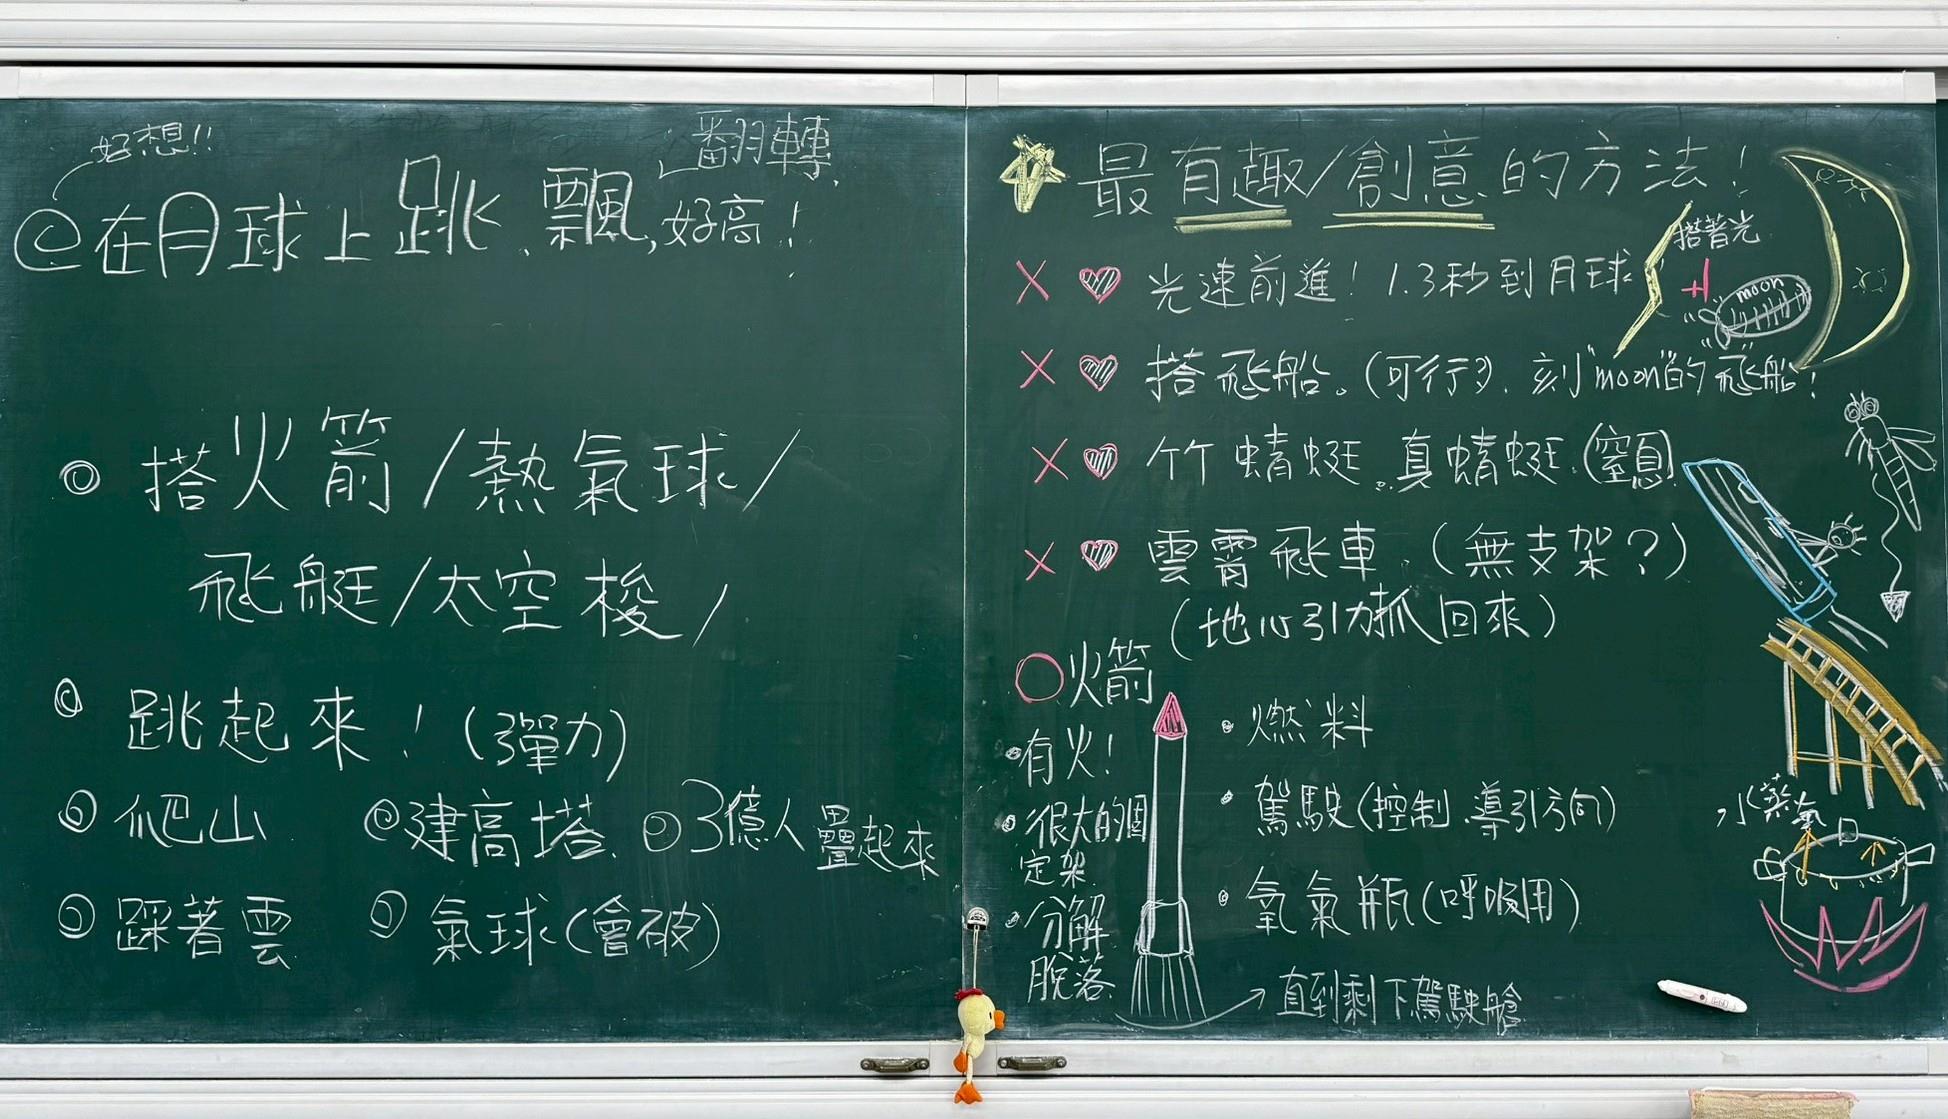 好想!!
翻轉
在月球上跳、飄,好高!
搭火箭/熱氣球/
飛艇/太空梭/
跳起來!(彈力)
爬山
建高塔
3億人疊起來
踩著雲
氣球(會破)
最有趣/創意的方法!
光速前進!1.3秒到月球
搭著光
moon
搭飛船。(可行?)、刻"moon"的飛船!
竹蜻蜓、真蜻蜓(窒息)
雲霄飛車(無支架?)
(地心引力抓回來)
火箭
有火!
很大的固
定架
分解
脫落
燃料
駕駛(控制、導引方向)
氧氣瓶(呼吸用)
直到剩下駕駛艙
水蒸氣